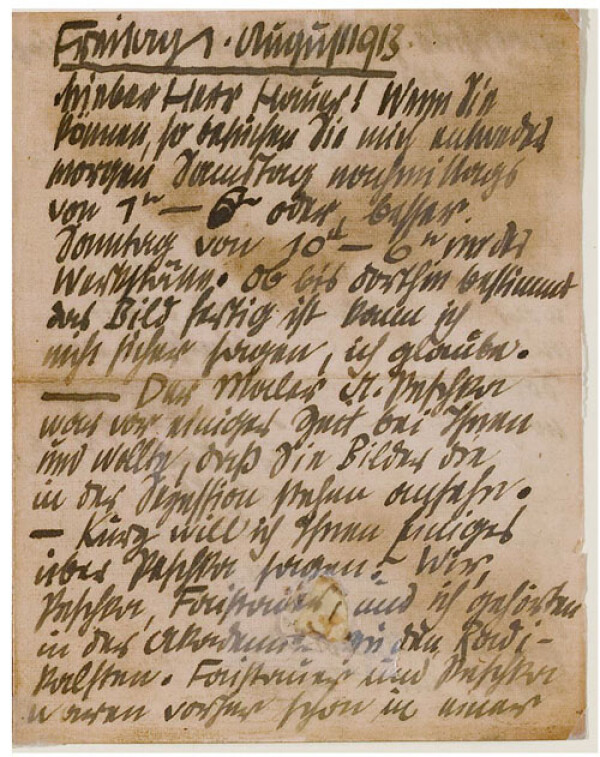 Freitag 1. August 1913.
Lieber Herr Hauer! Wenn Sie
können, so besuchen Sie mich entweder
morgen Samstag nachmittags
von 1h – 6h oder, besser
Sonntag von 10h – 6h in der
Werkstätte. Ob bis dorthin bestimmt
das Bild fertig ist kann ich
nicht sicher sagen, ich glaube.
— Der Maler A. Peschka
war vor einiger Zeit bei Ihnen
und wollte, daß Sie Bilder die
in der Sezession stehen ansehn.
– Kurz will ich Ihnen einiges
über Peschka sagen: – Wir,
Peschka, Faistauer, und ich gehörten
in der Akademie zu den Radi-
kalsten. Faistauer und Peschka
waren vorher schon in einer